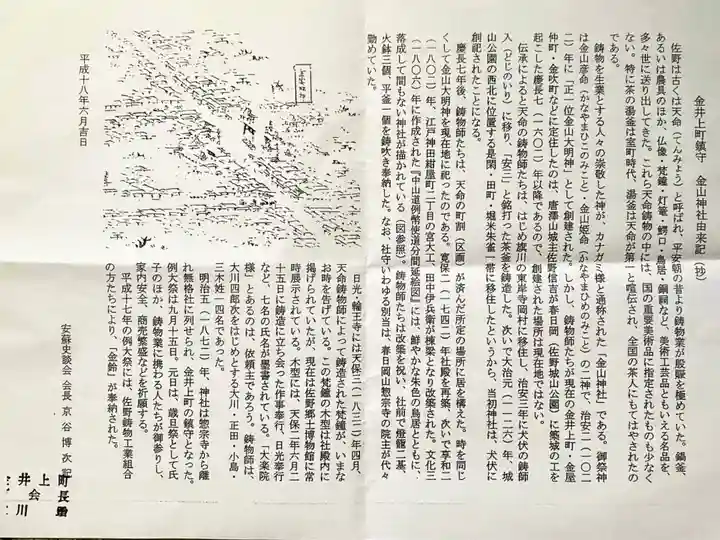 金井上町鎮守　金山神社由来記（抄）
佐野は古くは天命（てんみょう）と呼ばれ、平安朝の昔より鋳物業が殷賑を極めていた。鍋釜、
あるいは農具のほか、仏像・梵鐘・灯篭・鰐口・鳥居・銅祠など、美術工芸品ともいえる名品を、
多々世に送り出してきた。これら天命鋳物の中には、国の重要美術品に指定されたものも少なく
ない。特に茶の湯釜は室町時代、湯釜は天命が第一と喧伝され、全国の茶人にもてはやされたの
である。
鋳物を生業とする人々の崇敬した神が、カナガミ様と通称された「金山神社」である。御祭神
は金山彦命（かなやまひこのみこと）・金山姫命（かなやまひめのみこと）の二神で、治安二（一〇二
二）年に「正一位金山大明神」として創建された。しかし、鋳物師たちが現在の金井上町・金屋
仲町・金吹町などに定住したのは、唐澤山城主佐野信吉が春日岡（佐野城山公園）に築城の工を
起こした慶長七（一六〇二）年以降であるので、創建された場所は現在地ではない。
伝承によると天命の鋳物師たちは、はじめ旗川の東岸寺岡村に移住し、治安三年に犬伏の鋳師
入（どじのいり）に移り、「安三」と銘打った茶釜を鋳造した。次いで大治元（一一二六）年、城
山公園の西北に位置する是閑・田町・堀米朱雀一帯に移住したというから、当初神社は、犬伏に
創祀されたことになる。
慶長七年後、鋳物師たちは、天命の町割（区画）が済んだ所定の場所に居を構えた。時を同じ
くして金山大明神を現在地に祀ったのである。寛保二（一七四二）年社殿を再築、次いで享和二
（一八〇二）年、江戸神田紺屋町二丁目の宮大工、田中伊兵衛が棟梁となり改築された。文化三
（一八〇六）年に作成された『中山道例幣使道分間延絵図』には、鮮やかな朱色の鳥居とともに、
落成して間もない神社が描かれている（図参照）。鋳物師たちは改築を祝い、社前で燈籠二基、
火鉢三個、平釜一個を鋳吹き奉納した。なお、社守いわゆる別当は、春日岡山惣宗寺の院主が代々
勤めていた。
日光・輪王寺には天保三（一八三二）年四月、
天命鋳物師によって鋳造された梵鐘が、いまな
お時を告げている。この梵鐘の木型は社殿内に
掲げられていたが、現在は佐野郷土博物館に常
時展示されている。木型には、天保二年六月二
十五日に鋳造に立ち会った作事奉行、日光奉行
など、七名の氏名が墨書されている。「大楽院
様」とあるのは、依頼主であろう。鋳物師は、
大川四郎次をはじめとする大川・正田・小島・
三木姓一四名であった。
明治五（一八七二）年、神社は惣宗寺から離
れ無格社に列せられ、金井上町の鎮守となった。
例大祭は九月十五日。元日は、歳旦祭として氏
子のほか、鋳物業に携わる人たちが御参りし、
家内安全、商売繁盛などを祈願する。
平成十七年の例大祭には、佐野鋳物工業組合
の方たちにより、「金鈴」が奉納された。
安蘇史談会　会長　京谷　博次　記
平成十八年六月吉日
井上町
会長
川